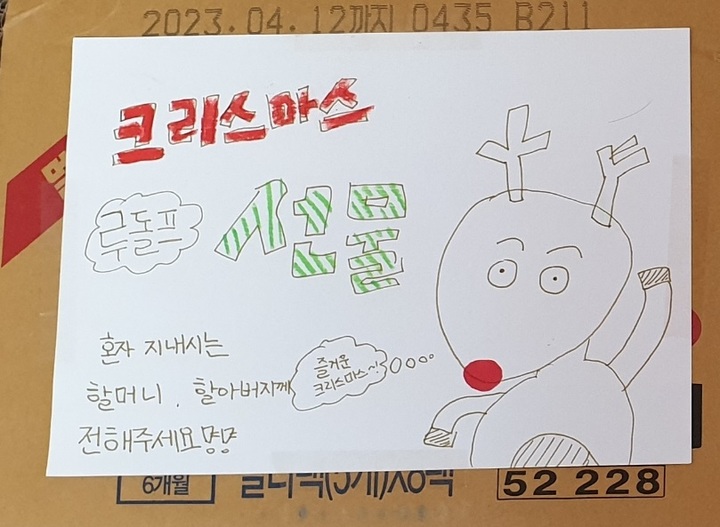 2023.04.12까지 0435 B211
크리스마스
루돌프
선물
혼자 지내시는
할머니, 할아버지께
전해주세요멍멍
즐거운
크리스마스~!
6개월
멀티팩(5개)X8팩
52 228